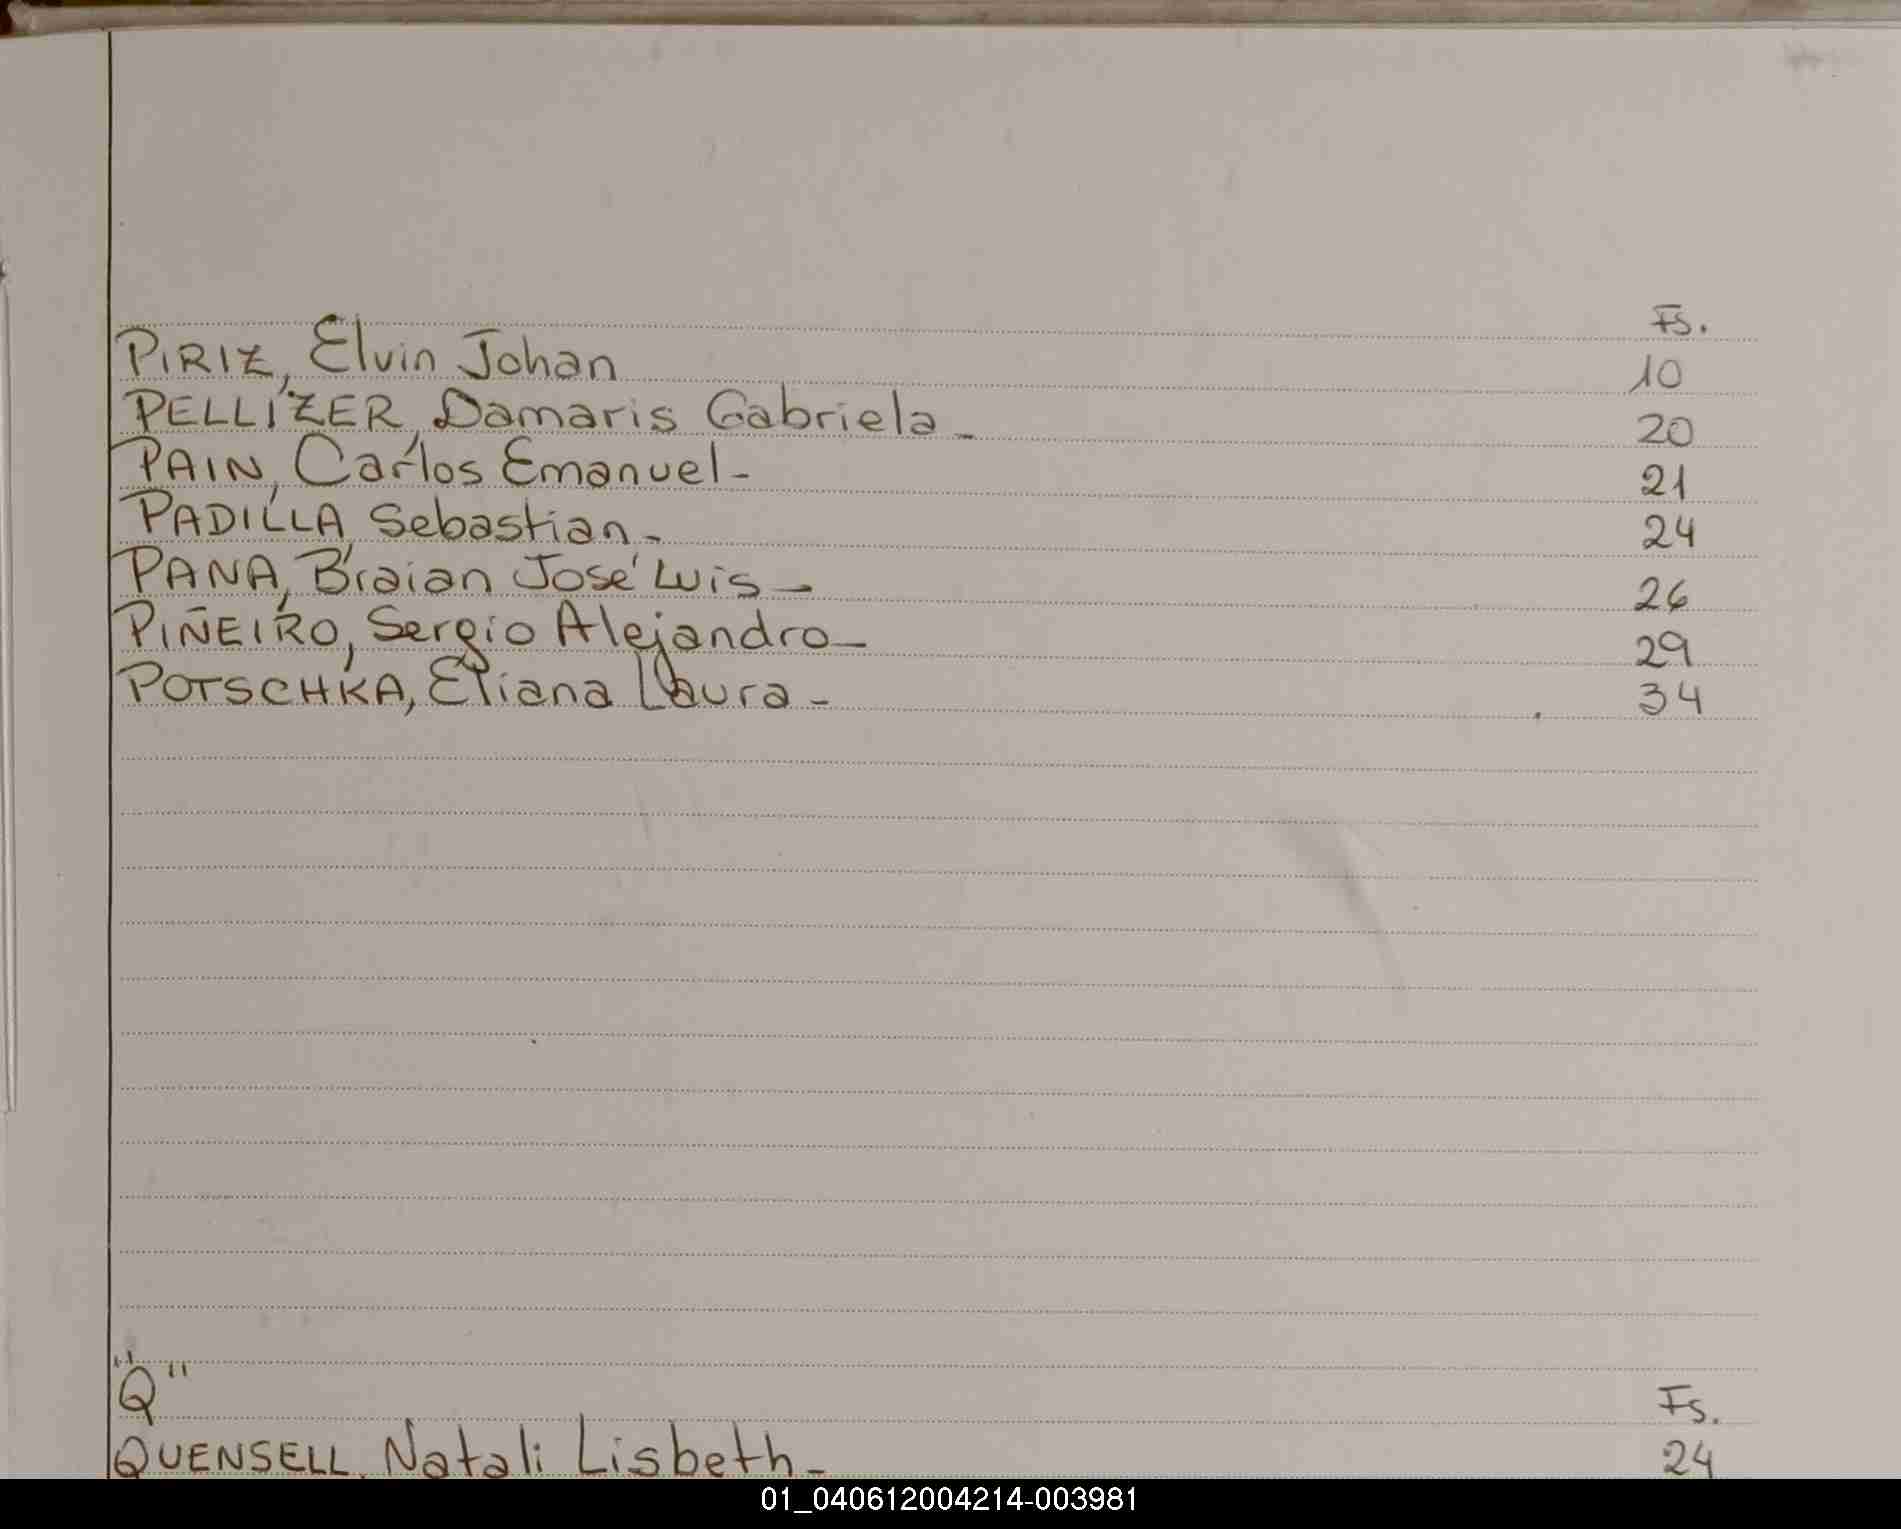 Fs.
PIRIZ, Elvin Johan 10
PELLIZER, Damaris Gabriela - 20
PAIN, Carlos Emanuel - 21
PADILLA, Sebastian - 24
PANA, Braian José Luis - 26
PIÑEIRO, Sergio Alejandro - 29
POTSCHKA, Eliana Laura - 34
"Q"
Fs.
QUENSELL, Natali Lisbeth - 24
01_040612004214-003981